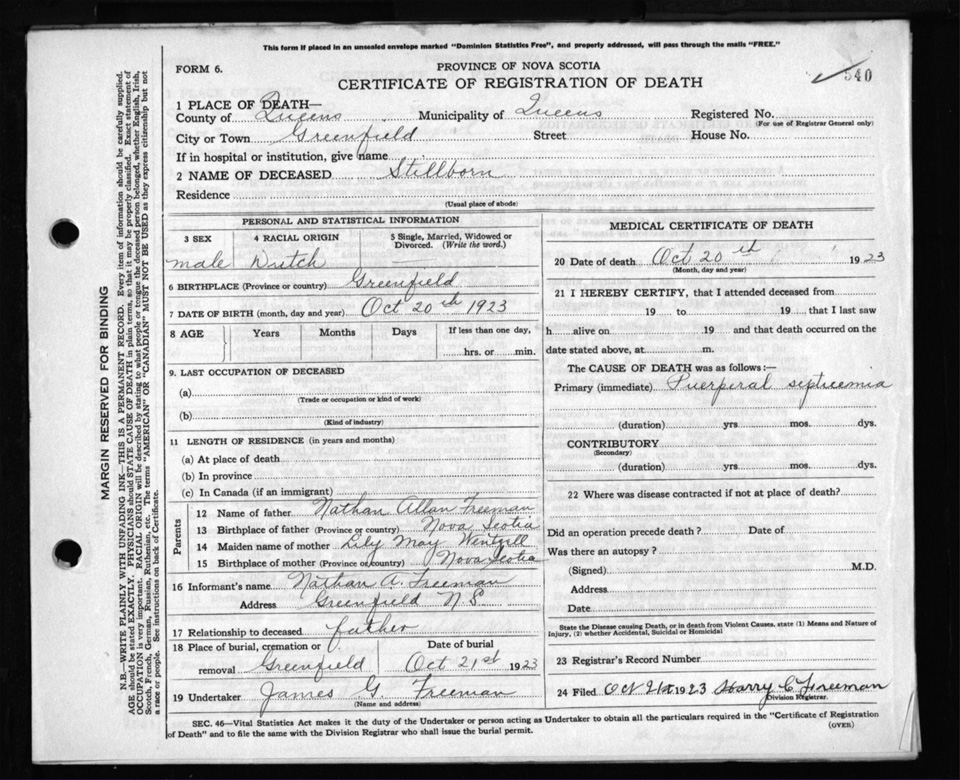 This form if placed in an unsealed envelope marked "Dominion Statistics Free", and properly addressed, will pass through the mails "FREE."
FORM 6.
PROVINCE OF NOVA SCOTIA
CERTIFICATE OF REGISTRATION OF DEATH
540
1 PLACE OF DEATH—
County of Queens Municipality of Queens Registered No.
(For use of Registrar General only)
City or Town Greenfield Street House No.
If in hospital or institution, give name
2 NAME OF DECEASED Stillborn
Residence
(Usual place of abode)
PERSONAL AND STATISTICAL INFORMATION
3 SEX 4 RACIAL ORIGIN 5 Single, Married, Widowed or Divorced. (Write the word.)
male Dutch
6 BIRTHPLACE (Province or country) Greenfield
7 DATE OF BIRTH (month, day and year) Oct 20th 1923
8 AGE Years Months Days If less than one day,
hrs. or min.
9. LAST OCCUPATION OF DECEASED
(a)
(Trade or occupation or kind of work)
(b)
(Kind of industry)
11 LENGTH OF RESIDENCE (in years and months)
(a) At place of death
(b) In province
(c) In Canada (if an immigrant)
Parents
12 Name of father Nathan Allan Freeman
13 Birthplace of father (Province or country) Nova Scotia
14 Maiden name of mother Lily May Wentzell
15 Birthplace of mother (Province or country) Nova Scotia
16 Informant's name Nathan A. Freeman
Address Greenfield N S.
17 Relationship to deceased father
18 Place of burial, cremation or Date of burial
removal Greenfield Oct 21st 1923
19 Undertaker James G. Freeman
(Name and address)
MEDICAL CERTIFICATE OF DEATH
20 Date of death Oct 20th 1923
(Month, day and year)
21 I HEREBY CERTIFY, that I attended deceased from
19 to 19 that I last saw
h alive on 19 and that death occurred on the
date stated above, at m.
The CAUSE OF DEATH was as follows:—
Primary (immediate) Puerperal septicemia
(duration) yrs. mos. dys.
CONTRIBUTORY
(Secondary)
(duration) yrs. mos. dys.
22 Where was disease contracted if not at place of death?
Did an operation precede death? Date of
Was there an autopsy?
(Signed) M.D.
Address
Date
State the Disease causing Death, or in death from Violent Causes, state (1) Means and Nature of
Injury, (2) whether Accidental, Suicidal or Homicidal
23 Registrar's Record Number
24 Filed Oct 21st 1923 Harry C Freeman
Division Registrar.
SEC. 46—Vital Statistics Act makes it the duty of the Undertaker or person acting as Undertaker to obtain all the particulars required in the "Certificate of Registration
of Death" and to file the same with the Division Registrar who shall issue the burial permit.
(OVER)
MARGIN RESERVED FOR BINDING
N.B.—WRITE PLAINLY WITH UNFADING INK—THIS IS A PERMANENT RECORD. Every item of information should be carefully supplied.
AGE should be stated EXACTLY. PHYSICIANS should STATE CAUSE OF DEATH in plain terms, so that it may be properly classified. Exact statement of
OCCUPATION is very important. RACIAL ORIGIN will be described by stating to what people or tongue the deceased person belonged, whether English, Irish,
Scotch, French, German, Russian, Ruthenian, etc. The terms "AMERICAN" or "CANADIAN" MUST NOT BE USED as they express citizenship but not
a race or people. See instructions on back of Certificate.